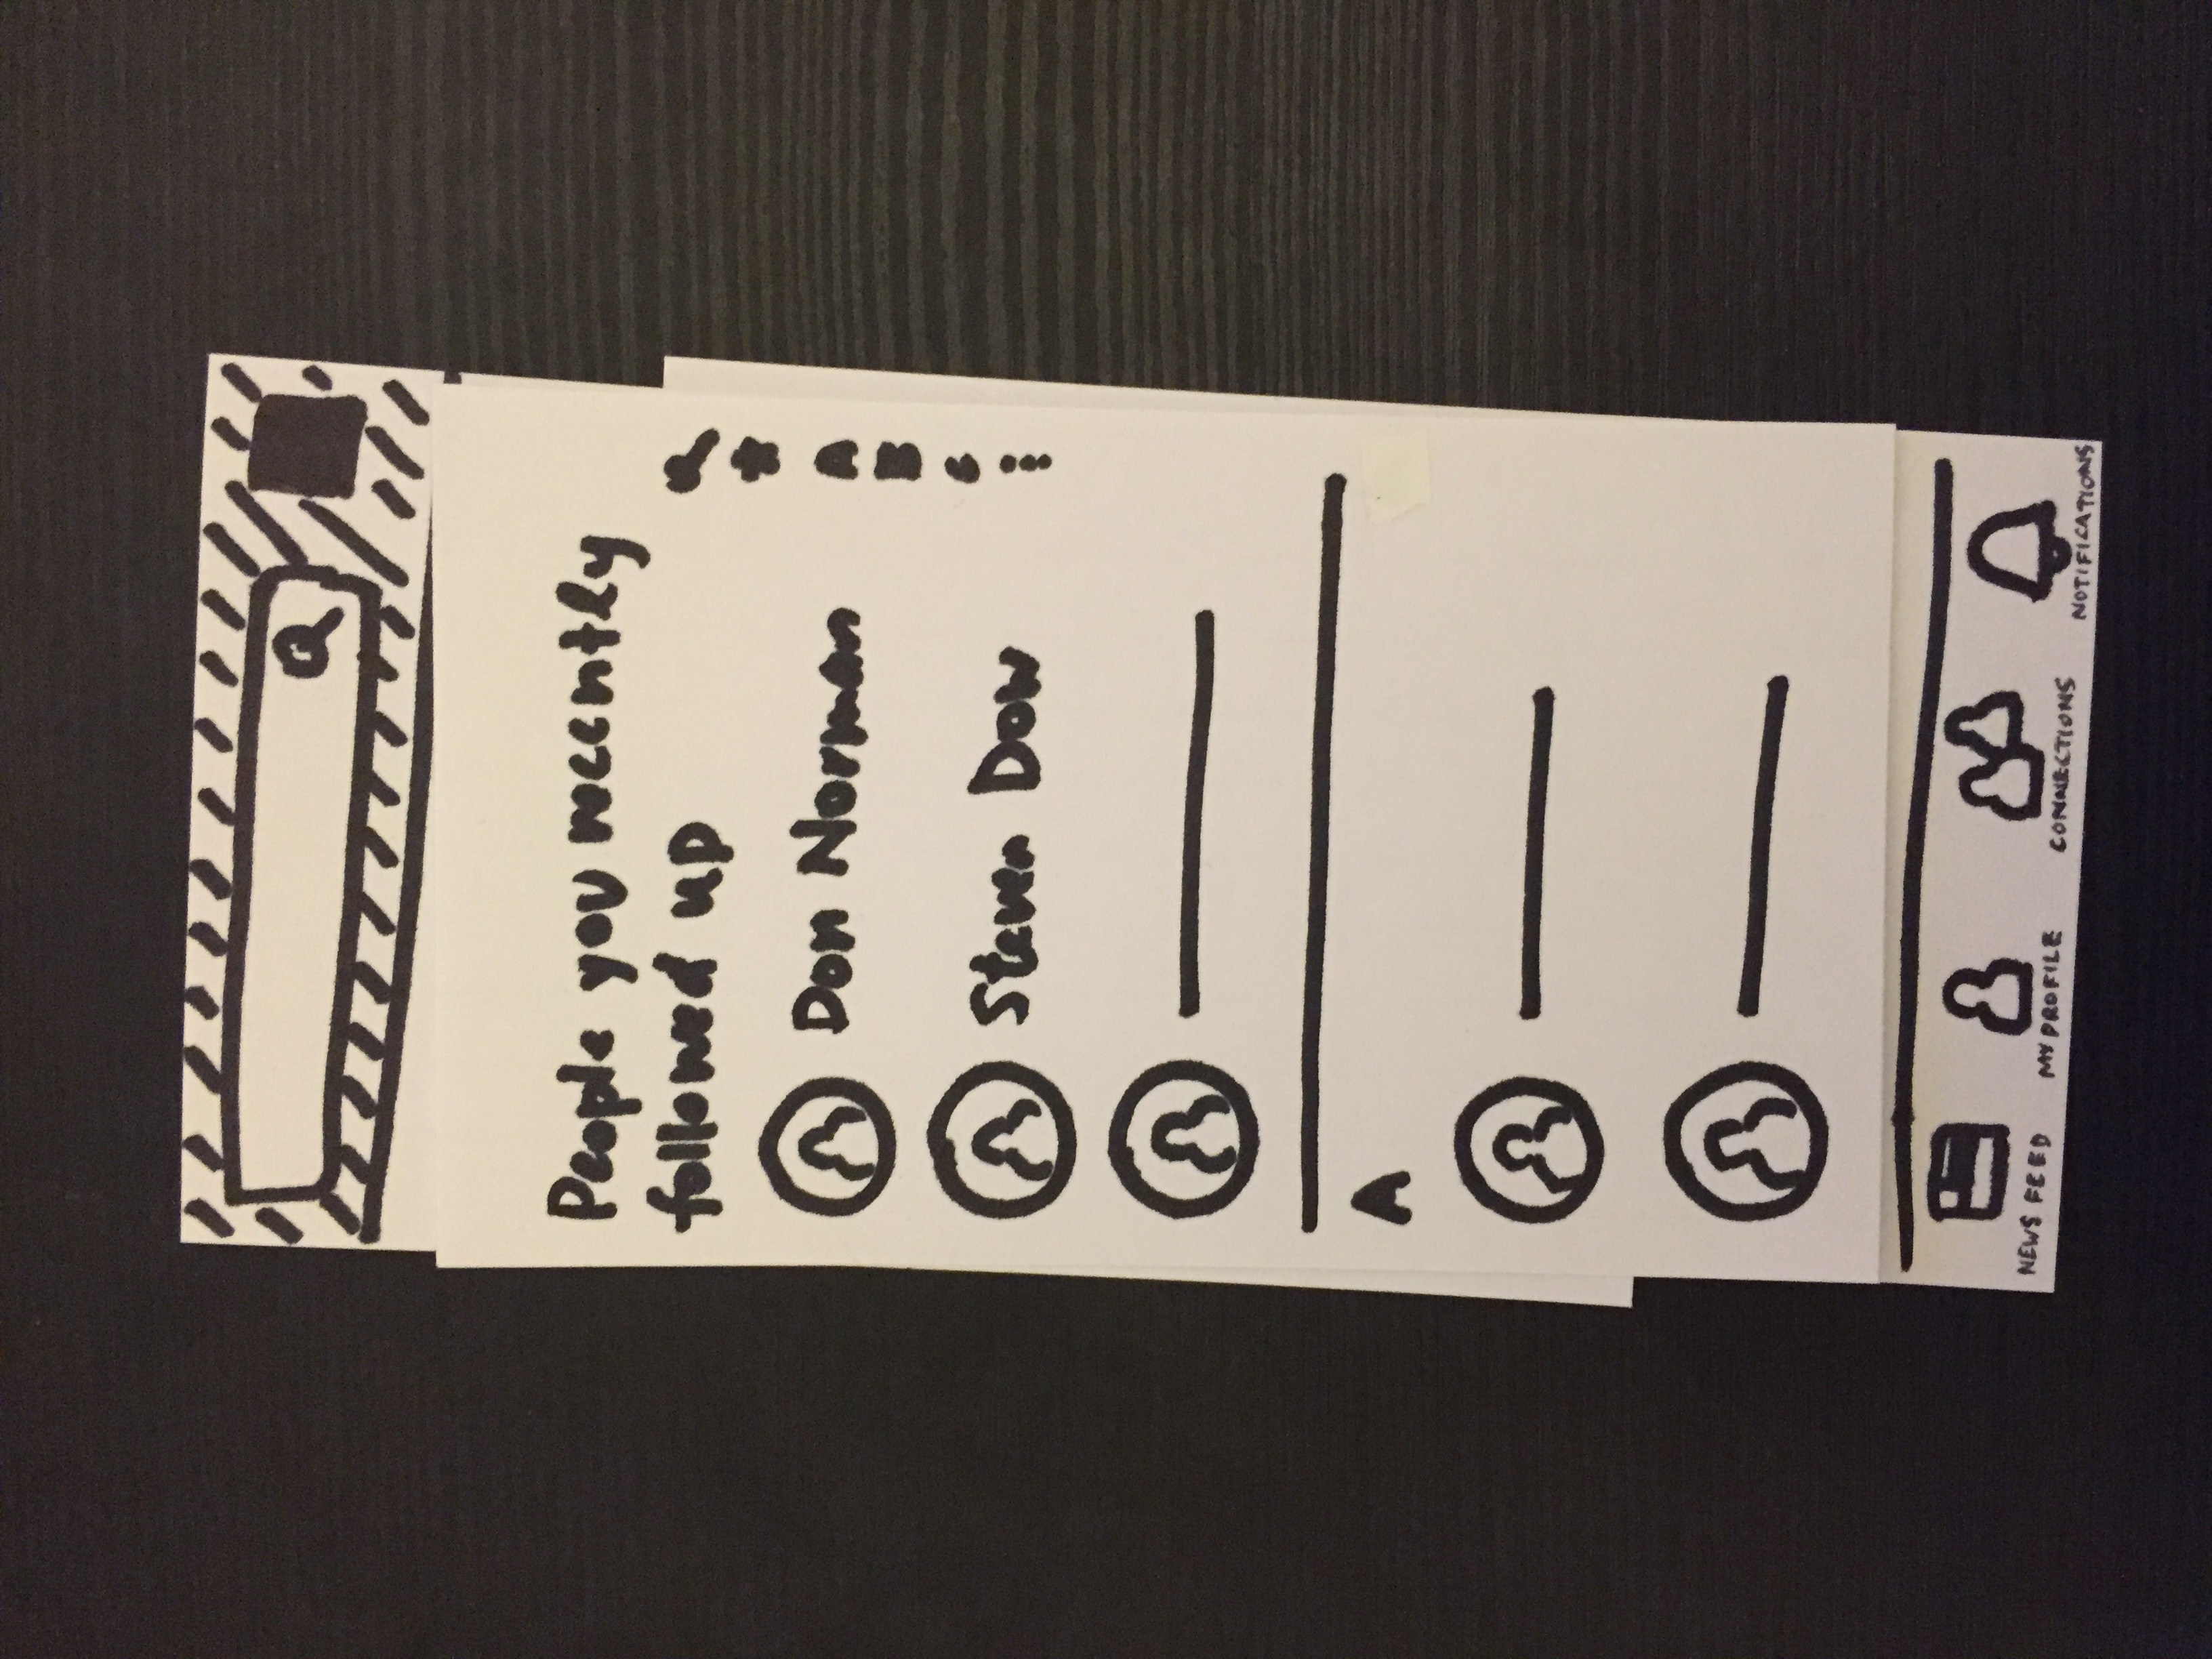 People you recently
followed up
Don Norman
A
B
C
Steven Dow
A
NEWS FEED
MY PROFILE
CONNECTIONS
NOTIFICATIONS